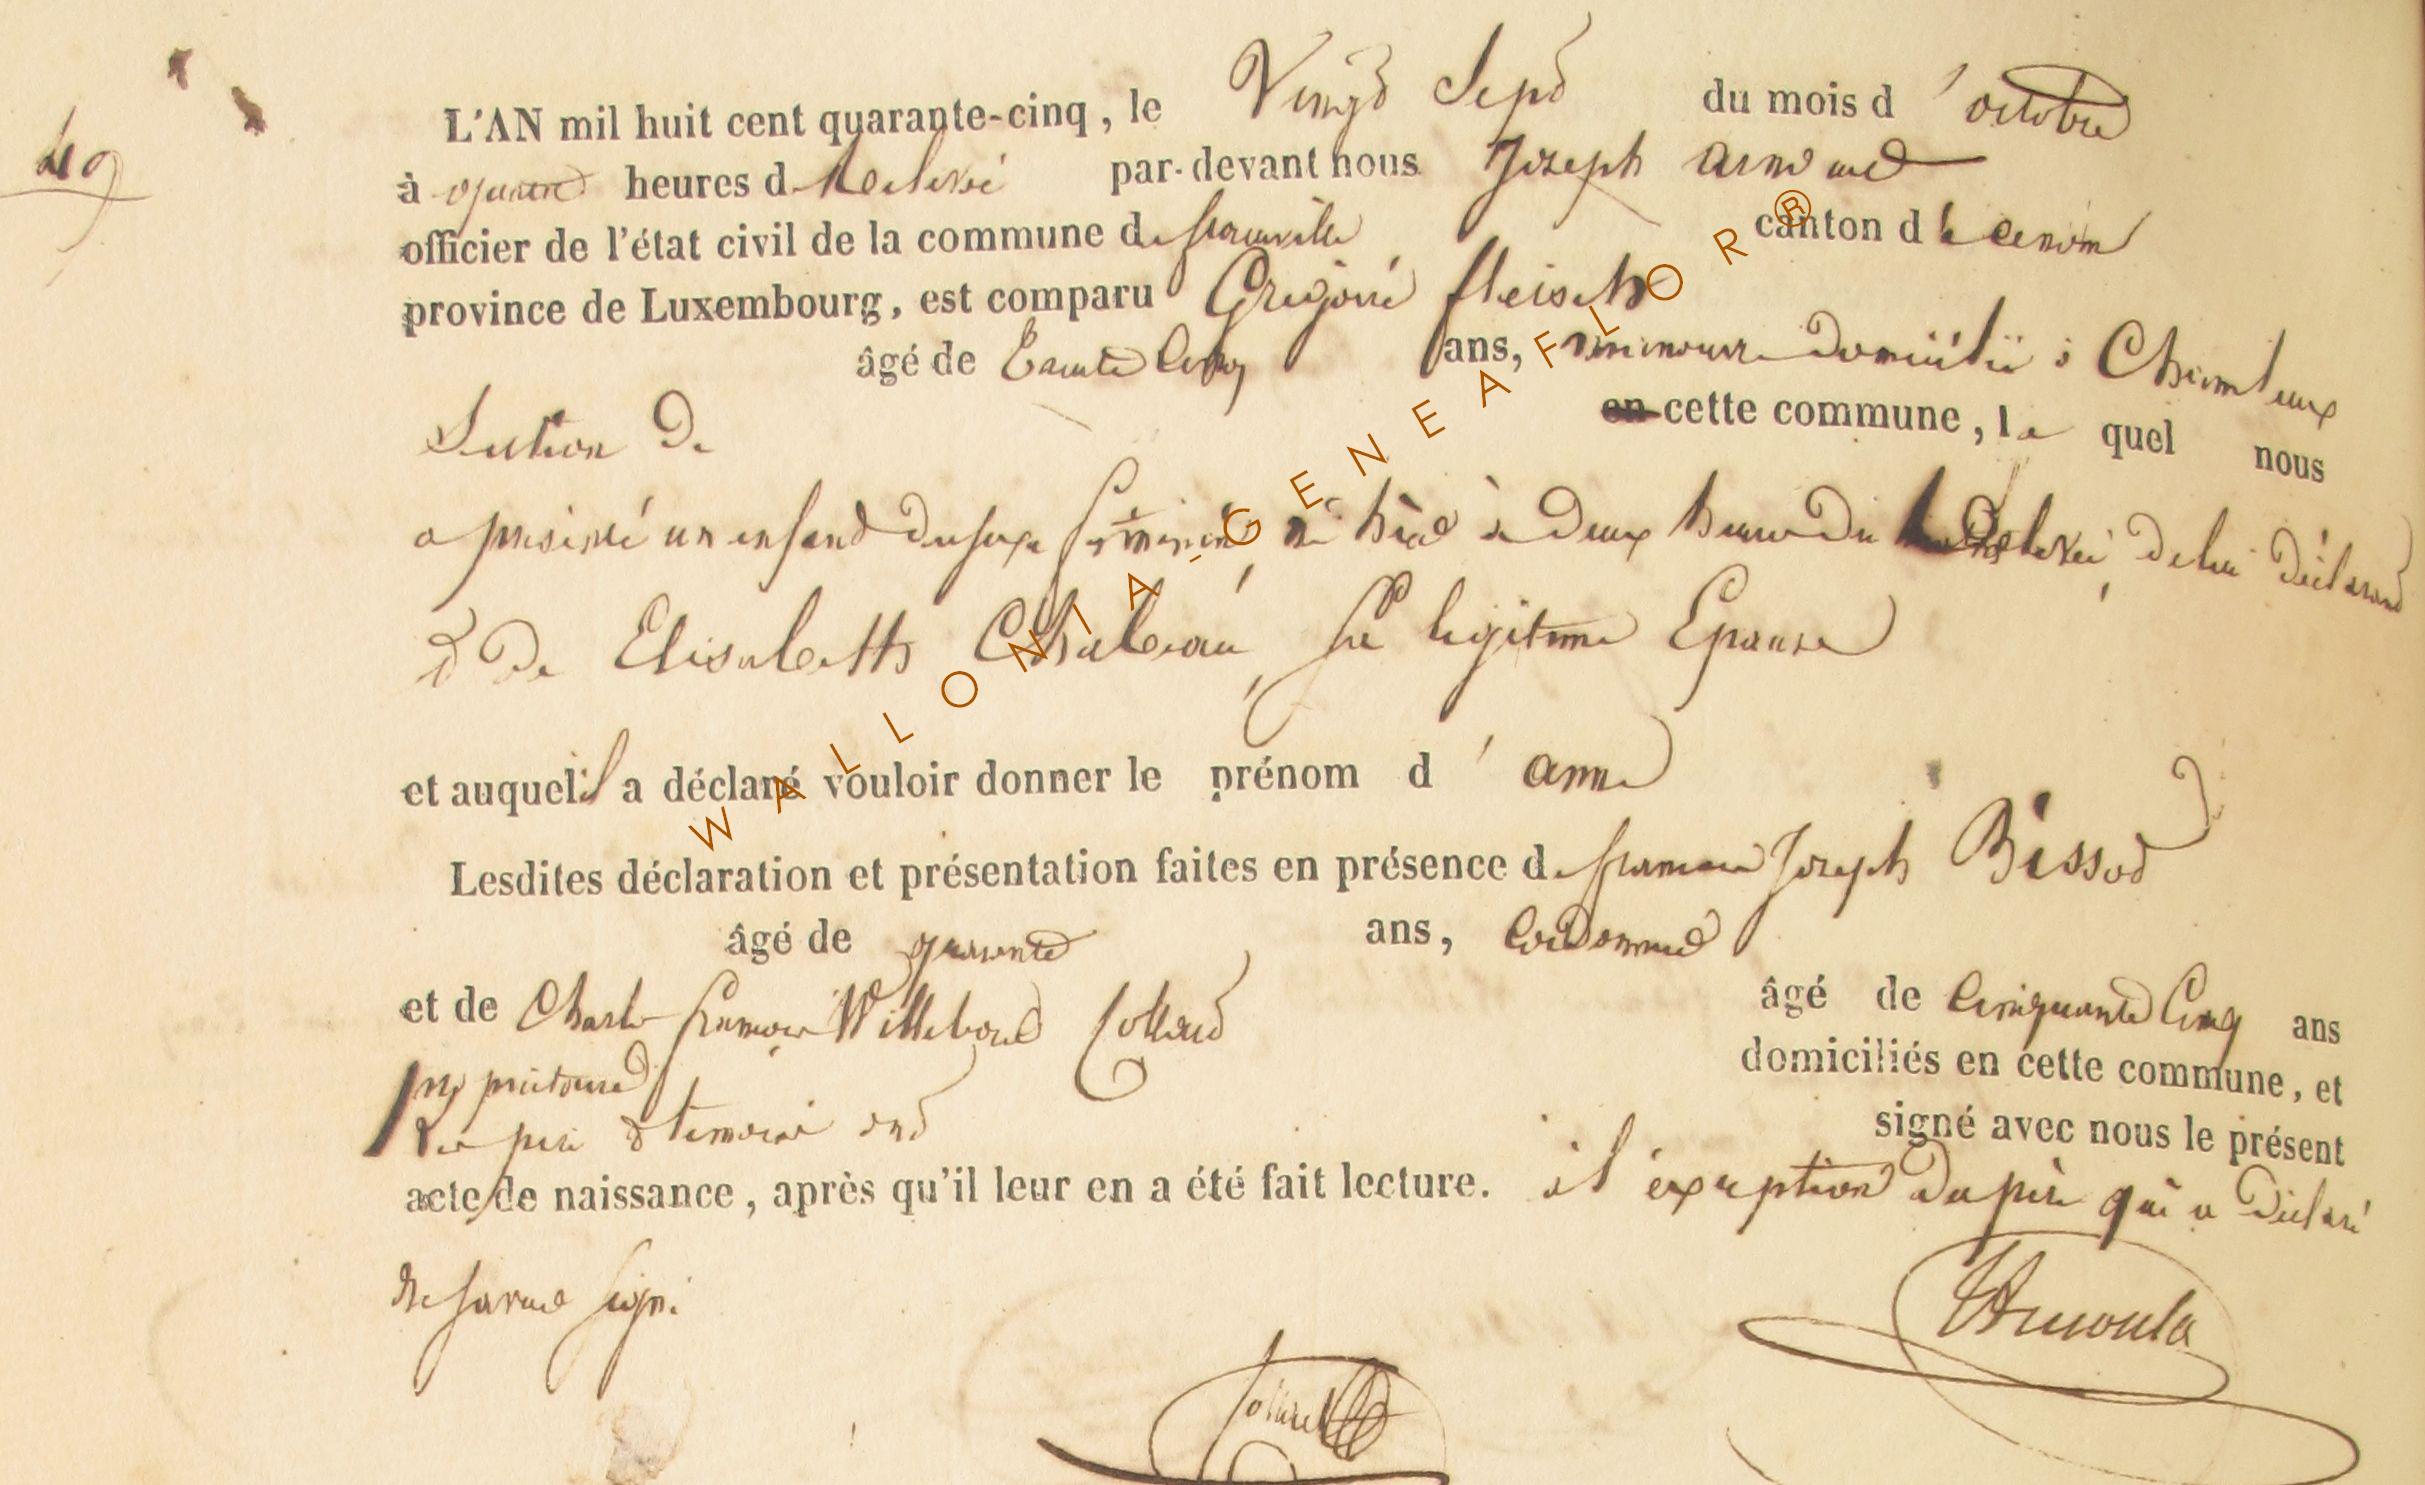 49
L'AN mil huit cent quarante-cinq, le Vingt Sept du mois d'octobre
à quatre heures d relevé par-devant nous Joseph arnould
officier de l'état civil de la commune de canton d
province de Luxembourg, est comparu Grégoire fleisch
âgé de trente cinq ans, domicilié à
Section de en cette commune, le quel nous
a présenté un enfant du sexe féminin né hier à deux heures du relevé, de lui déclarant
et de Elisabeth sa legitime Epouse
et auquel il a déclaré vouloir donner le prénom d'anne
Lesdites déclaration et présentation faites en présence de françois Joseph Bissot
âgé de quarante ans, cordonnier
et de Charles françois Willebord Collard âgé de Cinquante Cinq ans
propriétaire domiciliés en cette commune, et
Les père et temoins ont signé avec nous le présent
acte de naissance, après qu'il leur en a été fait lecture. à l'exception du père qui a déclaré
ne savoir signé
Collard
WALLONIA-GENEAFLOR®